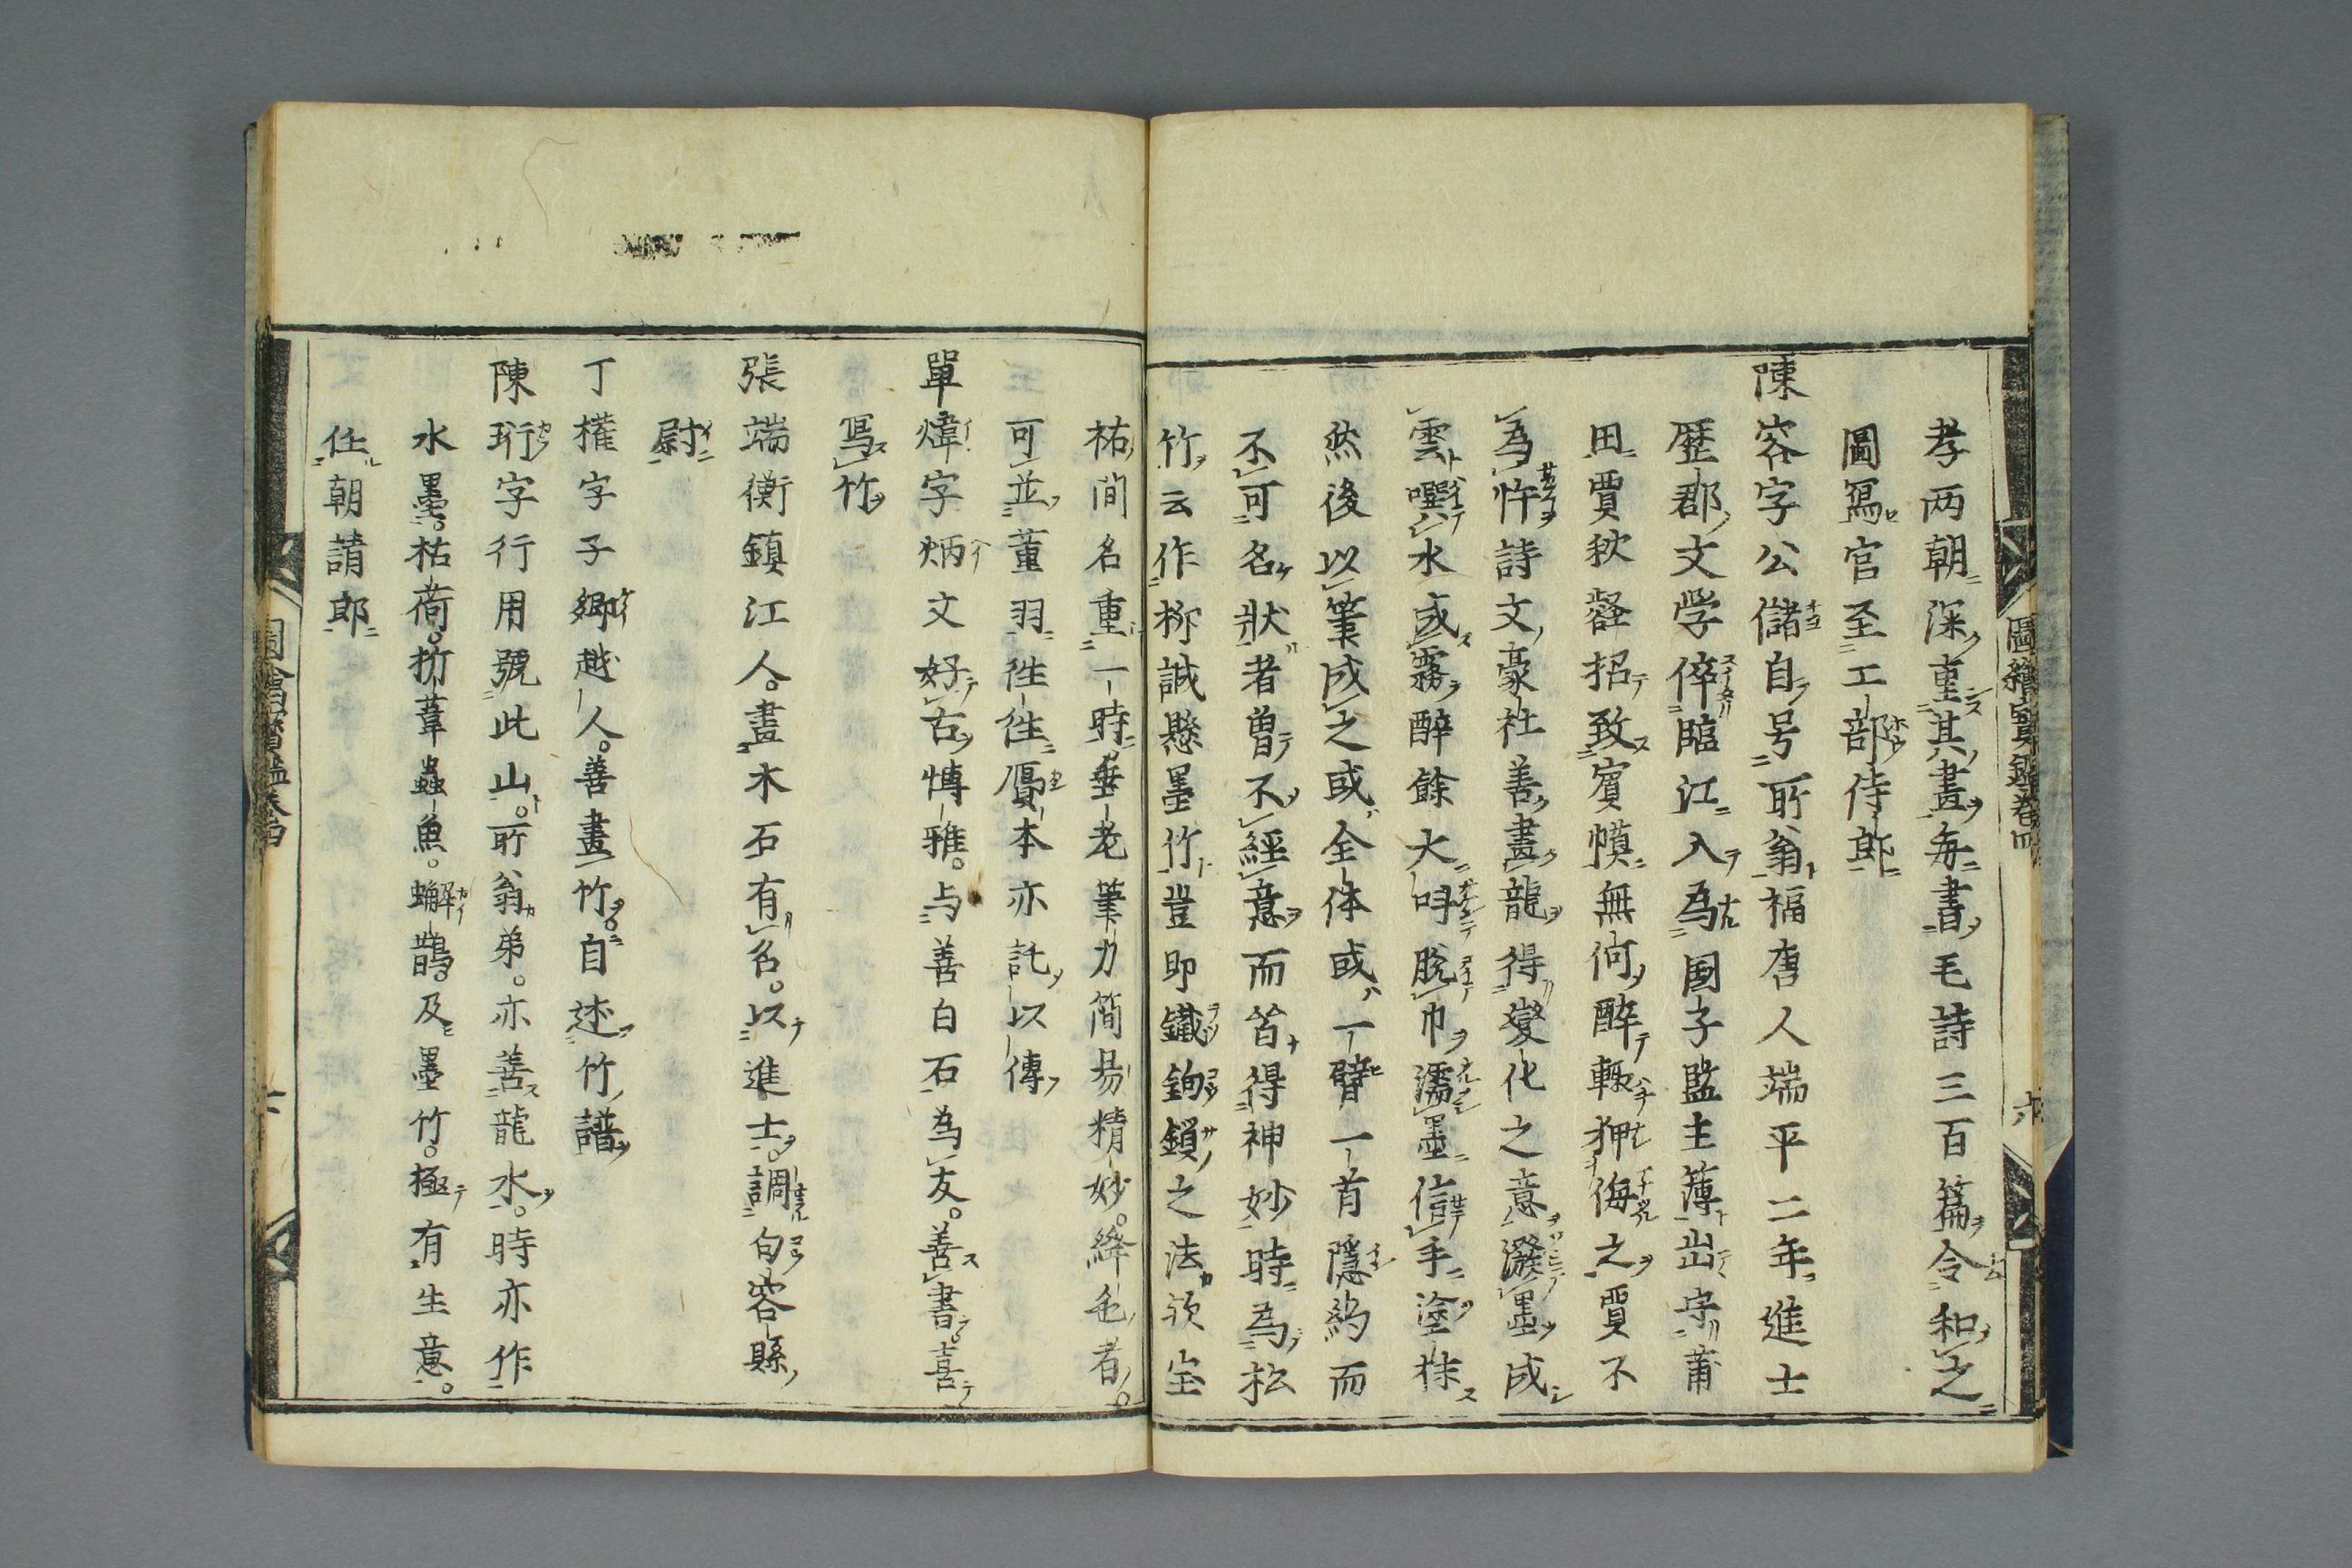 孝两朝深重其畫毎書毛詩三百篇令和之
圖寫官至工部侍郎
陳容字公儲自号所翁福唐人端平二年進士
歴郡文学倅臨江入為國子監主薄出守莆
田賈秋壑招致賓幙無何醉輙狎侮之賈不
為忤詩文豪壮善畫龍得變化之意潑墨成
雲噀水成霧醉餘大呌脫巾濡墨信手塗抹
然後以筆成之或全体或一臂一首隱約而
不可名狀者曽不經意而皆得神妙時為松
竹云作栁誠懸墨竹豈即鐵鉤鎖之法欤宝
祐間名重一時垂老筆力簡易精妙絳色者
可並董羽徃徃贋本亦託以傳
單煒字炳文好古愽雅与善白石為友善書喜
寫竹
張端衡鎮江人畫木石有名以進士調句容縣
尉
丁權字子卿越人善畫竹自述竹譜
陳珩字行用號此山所翁弟亦善龍水時亦作
水墨枯荷折葦蟲魚蠏鵲及墨竹極有生意
仕朝請郎
圖繪寶鑑卷四
六